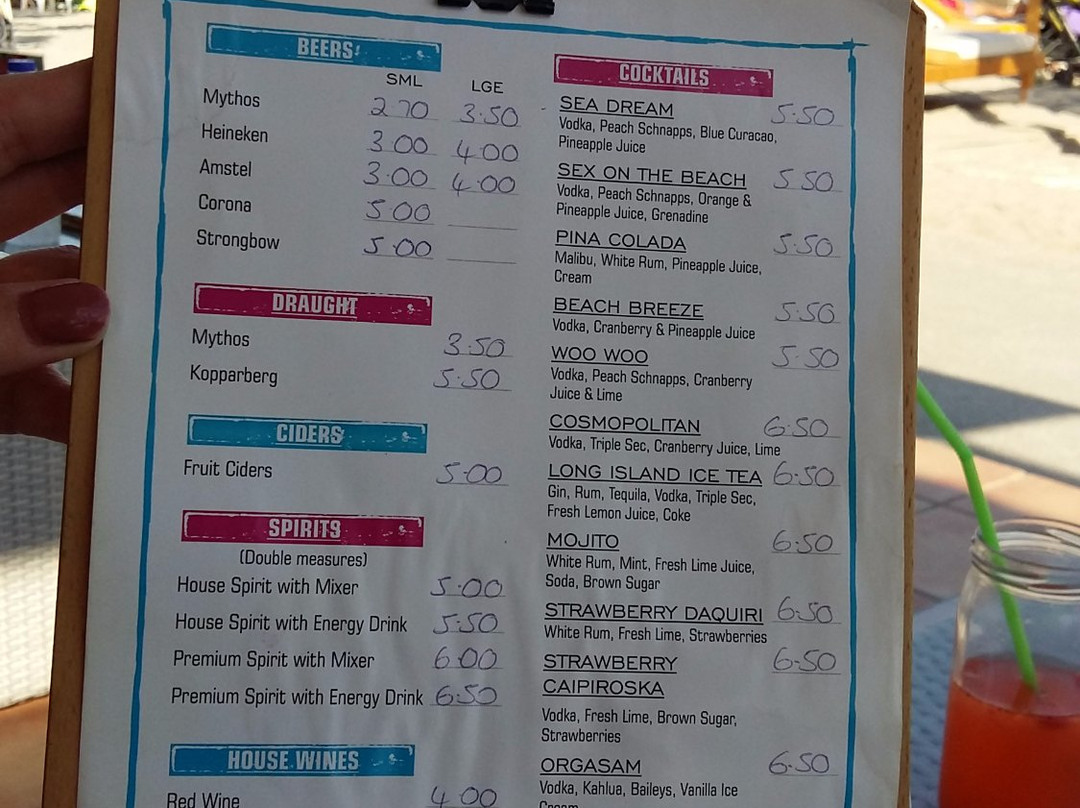 BEERS
SML LGE
Mythos 2.70 3.50
Heineken 3.00 4.00
Amstel 3.00 4.00
Corona 5.00
Strongbow 5.00
DRAUGHT
Mythos 3.50
Kopparberg 5.50
CIDERS
Fruit Ciders 5.00
SPIRITS
(Double measures)
House Spirit with Mixer 5.00
House Spirit with Energy Drink 5.50
Premium Spirit with Mixer 6.00
Premium Spirit with Energy Drink 6.50
HOUSE WINES
Red Wine 4.00
COCKTAILS
SEA DREAM 5.50
Vodka, Peach Schnapps, Blue Curacao,
Pineapple Juice
SEX ON THE BEACH 5.50
Vodka, Peach Schnapps, Orange &
Pineapple Juice, Grenadine
PINA COLADA 5.50
Malibu, White Rum, Pineapple Juice,
Cream
BEACH BREEZE 5.50
Vodka, Cranberry & Pineapple Juice
WOO WOO 5.50
Vodka, Peach Schnapps, Cranberry
Juice & Lime
COSMOPOLITAN 6.50
Vodka, Triple Sec, Cranberry Juice, Lime
LONG ISLAND ICE TEA 6.50
Gin, Rum, Tequila, Vodka, Triple Sec,
Fresh Lemon Juice, Coke
MOJITO 6.50
White Rum, Mint, Fresh Lime Juice,
Soda, Brown Sugar
STRAWBERRY DAQUIRI 6.50
White Rum, Fresh Lime, Strawberries
STRAWBERRY 6.50
CAIPIROSKA
Vodka, Fresh Lime, Brown Sugar,
Strawberries
ORGASAM 6.50
Vodka, Kahlua, Baileys, Vanilla Ice
Cream